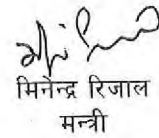 मिनेन्द्र रिजाल
मन्त्री